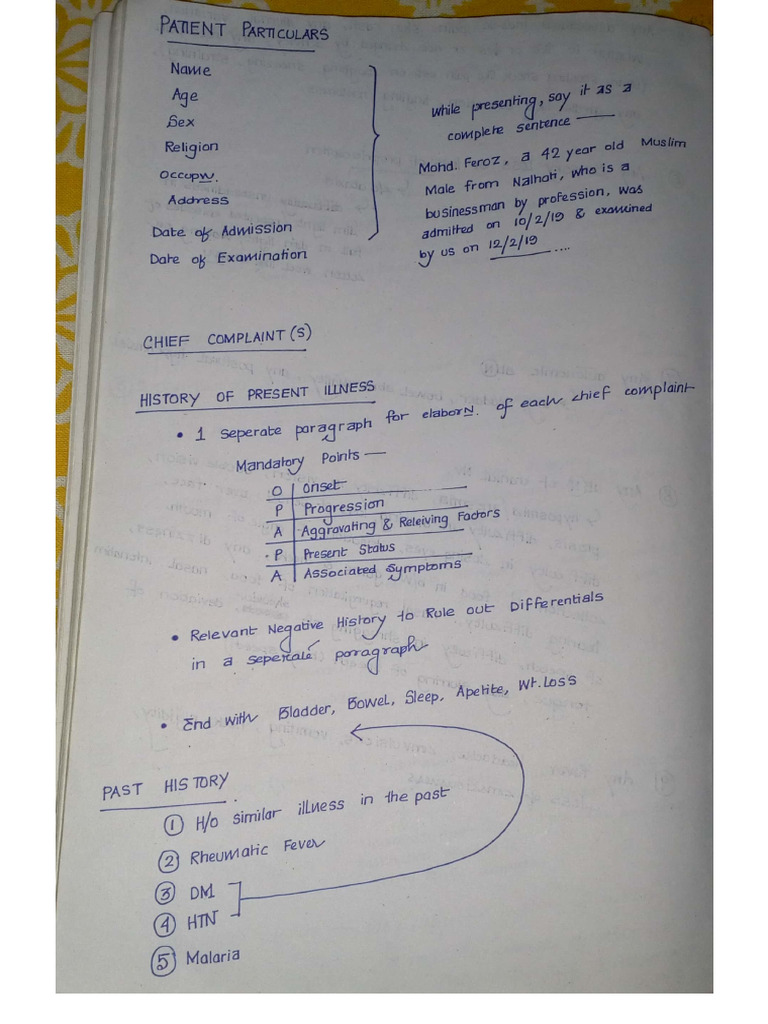 PATIENT PARTICULARS
Name
Age
Sex
Religion
Occupn.
Address
Date of Admission
Date of Examination
While presenting, say it as a
complete sentence —
Mohd. Feroz, a 42 year old Muslim
Male from Nalhati, who is a
businessman by profession, was
admitted on 10/2/19 & examined
by us on 12/2/19 ....
CHIEF COMPLAINT(S)
HISTORY OF PRESENT ILLNESS
• 1 seperate paragraph for elaborn. of each chief complaint
Mandatory Points —
O | Onset
P | Progression
A | Aggravating & Releiving Factors
P | Present Status
A | Associated Symptoms
• Relevant Negative History to Rule out Differentials
in a seperate paragraph
• End with Bladder, Bowel, Sleep, Apetite, Wt. Loss
PAST HISTORY
① H/o similar illness in the past
② Rheumatic Fever
③ DM
④ HTN
⑤ Malaria